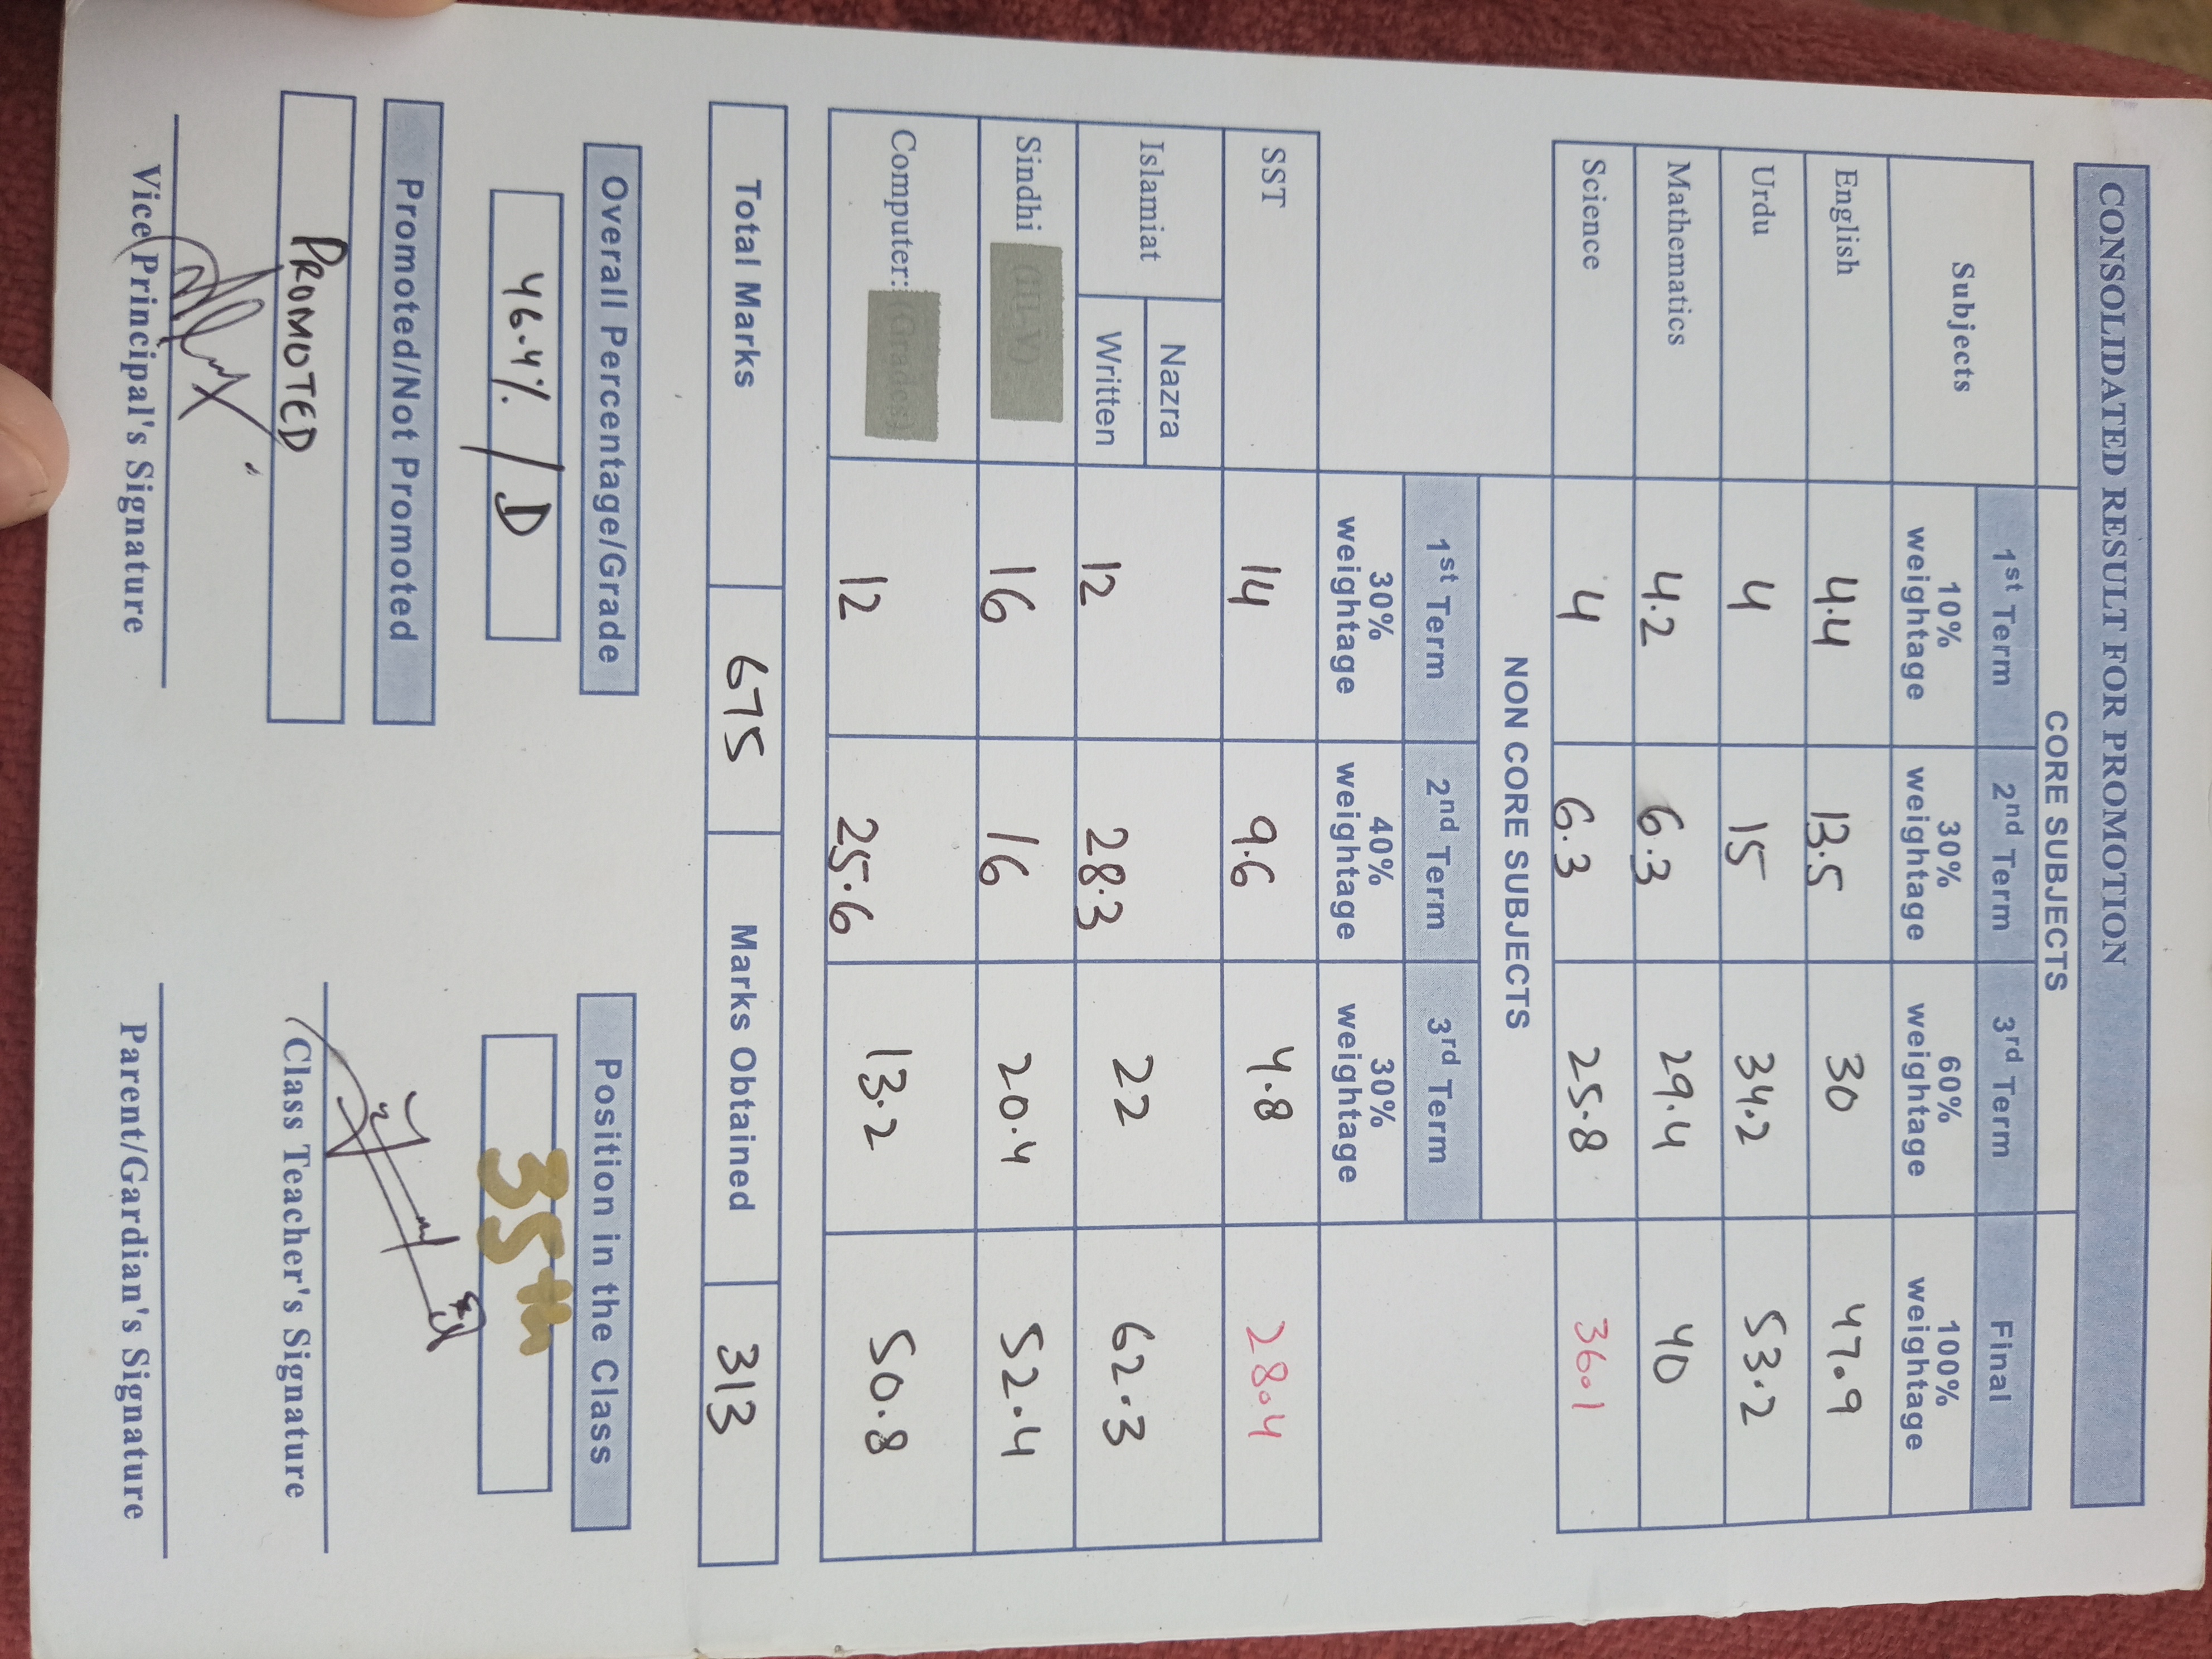 CONSOLIDATED RESULT FOR PROMOTION
CORE SUBJECTS
Subjects 1st Term 2nd Term 3rd Term Final
10% weightage 30% weightage 60% weightage 100% weightage
English 4.4 13.5 30 47.9
Urdu 4 15 34.2 53.2
Mathematics 4.2 6.3 29.4 40
Science 4 6.3 25.8 36.1
NON CORE SUBJECTS
1st Term 2nd Term 3rd Term
30% weightage 40% weightage 30% weightage
SST 14 9.6 4.8 28.4
Islamiat Nazra Written 12 28.3 22 62.3
Sindhi (III-V) 16 16 20.4 52.4
Computer: (Grades) 12 25.6 13.2 50.8
Total Marks 675 Marks Obtained 313
Overall Percentage/Grade Position in the Class
46.4% / D 35th
Promoted/Not Promoted
PROMOTED
Class Teacher's Signature
Vice Principal's Signature Parent/Gardian's Signature